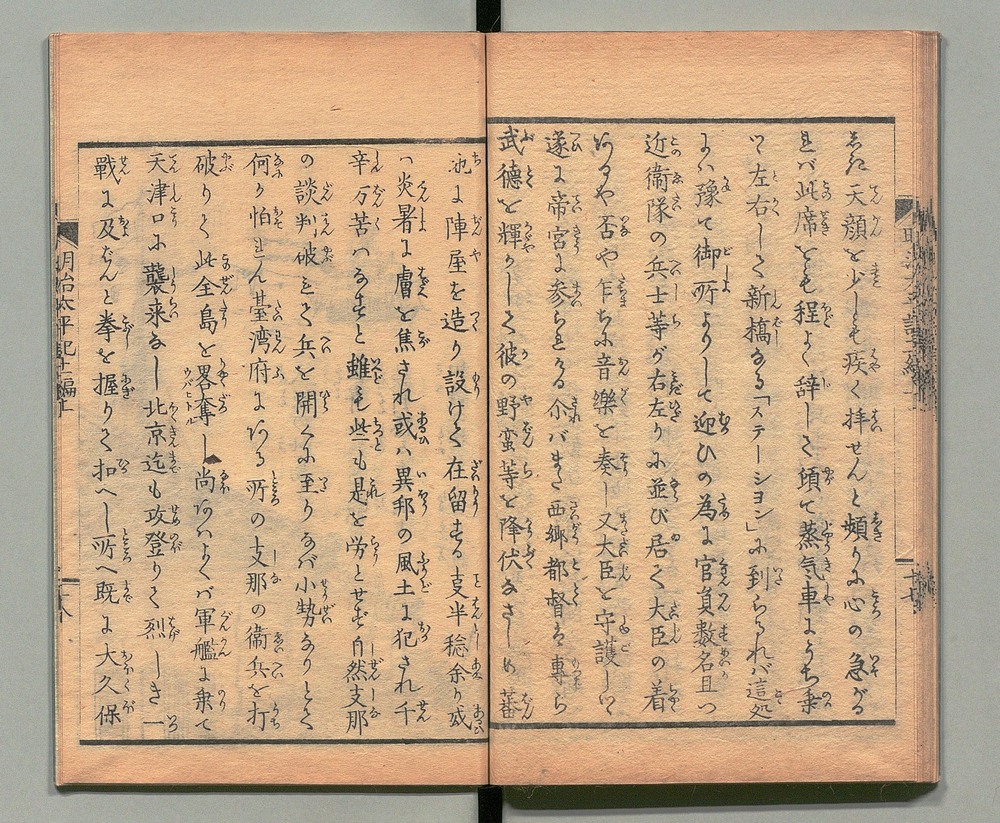 天顔を少しも疾く拝せんと頻りに心の急がる
れバ此席をも程よく辞して頓て蒸気車にうち乗
て左右して新橋なる「ステーション」に到らるれバ這処
にハ豫て御所よりして迎ひの為に官員数名且つ
近衛隊の兵士等が右左りに並び居て大臣の着
いるや否や乍ちに音樂を奏し又大臣を守護しつゝ
遂に帝宮に参らせける尒バまた西郷都督は専ら
武徳を輝かして彼の野蛮等を降伏なさしめ蕃
地に陣屋を造り設けて在留する支半稔余り或
ハ炎暑に膚を焦され或ハ異邦の風土に犯され千
辛万苦ハなすと雖も些も是を労とせず自然支那
の談判破るゝて兵を開くに至りなバ小勢なりとて
何か怕れん臺湾府にいる所の支那の衞兵を打
破りて此全島を畧奪し尚いはよくバ軍艦に乗て
天津口に襲来なし北京迄も攻登りて烈しき一
戰に及ばんと拳を握りて扣へし所へ既に大久保
明治太平記十二編上